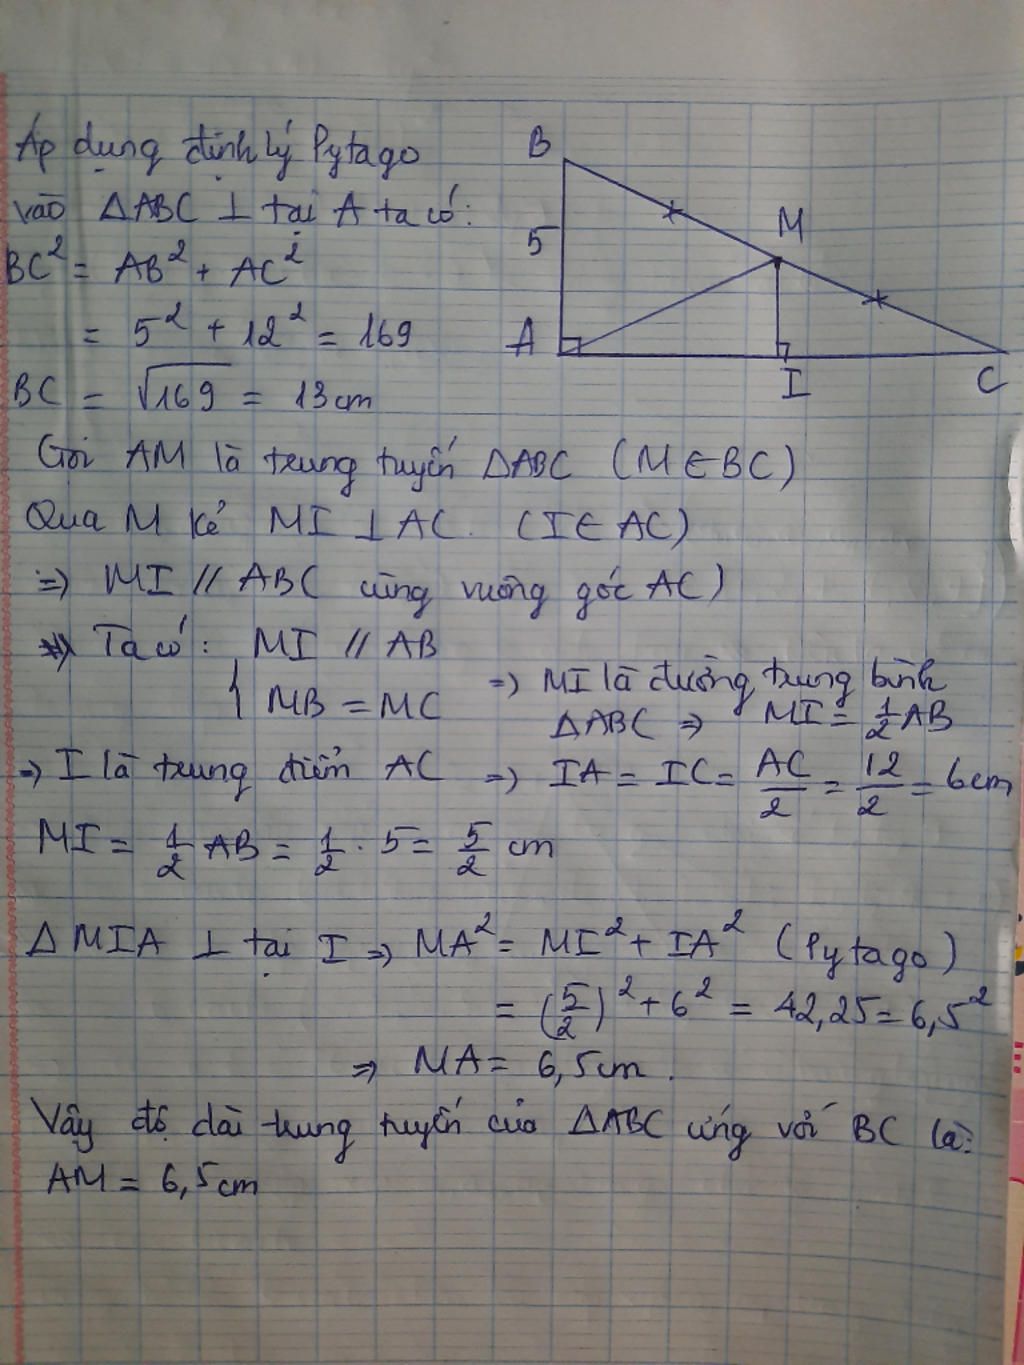 Áp dụng định lý Pytago
vào ΔABC ⊥ tại A ta có:
BC² = AB² + AC²
= 5² + 12² = 169
BC = √169 = 13cm
B
5
A
M
I
C
Gọi AM là trung tuyến ΔABC (M∈BC)
Qua M kẻ MI ⊥ AC. (I∈AC)
=> MI // AB( cùng vuông góc AC)
=> Ta có: MI // AB
{ MB = MC
=> MI là đường trung bình
ΔABC => MI = 1/2 AB
=> I là trung điểm AC => IA = IC = AC/2 = 12/2 = 6cm
MI = 1/2 AB = 1/2 . 5 = 5/2 cm
ΔMIA ⊥ tại I => MA² = MI² + IA² (Pytago)
= (5/2)² + 6² = 42,25 = 6,5²
=> MA = 6,5cm.
Vậy độ dài trung tuyến của ΔABC ứng với BC là:
AM = 6,5cm